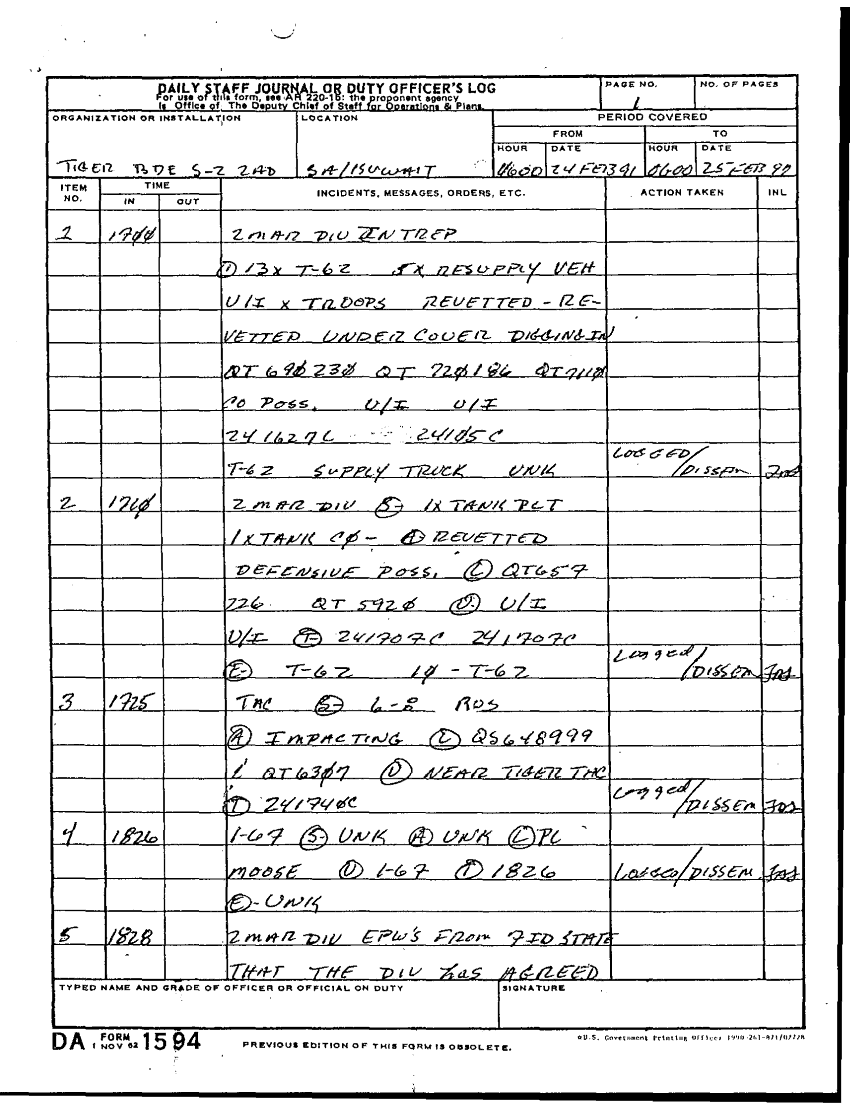 DAILY STAFF JOURNAL OR DUTY OFFICER'S LOG
For use of this form, see AR 220-15: the proponent agency
is Office of The Deputy Chief of Staff for Operations & Plans.
PAGE NO.
1
NO. OF PAGES
ORGANIZATION OR INSTALLATION
TIGER BDE S-2 2AD
LOCATION
SA/KUWAIT
PERIOD COVERED
FROM TO
HOUR DATE HOUR DATE
0600 24 FEB 91 0600 25 FEB 91
ITEM NO. TIME IN OUT INCIDENTS, MESSAGES, ORDERS, ETC. ACTION TAKEN INL
1 1700 2 MAR DIV INTREP
① 13x T-62 5x RESUPPLY VEH
U/I x TROOPS REVETTED - RE-
VETTED UNDER COVER DIGGING IN
QT 690230 QT 720186 QT7110
CO POSS. U/I U/I
241627C 24105C
T-62 SUPPLY TRUCK UNK LOGGED/DISSEM
2 1710 2 MAR DIV Ⓢ- 1x TANK PLT
1x TANK CO- Ⓐ REVETTED
DEFENSIVE POSS. Ⓛ QT657
226 QT 5920 Ⓤ U/I
U/I Ⓣ 241707C 241707C
Ⓔ T-62 10 - T-62 Logged/DISSEM
3 1725 TAC Ⓢ 6-8 RDS
Ⓐ IMPACTING Ⓛ QS648999
QT6307 Ⓤ NEAR TIGER TAC
Ⓣ 241740C Logged/DISSEM
4 1826 1-67 Ⓢ UNK Ⓐ UNK Ⓛ PL
MOOSE Ⓤ 1-67 Ⓣ 1826 LOGGED/DISSEM.
Ⓔ-UNK
5 1828 2 MAR DIV EPW'S FROM 7ID STATE
THAT THE DIV has AGREED
TYPED NAME AND GRADE OF OFFICER OR OFFICIAL ON DUTY SIGNATURE
DA FORM 1 NOV 62 1594 PREVIOUS EDITION OF THIS FORM IS OBSOLETE.
*U.S. Government Printing Office: